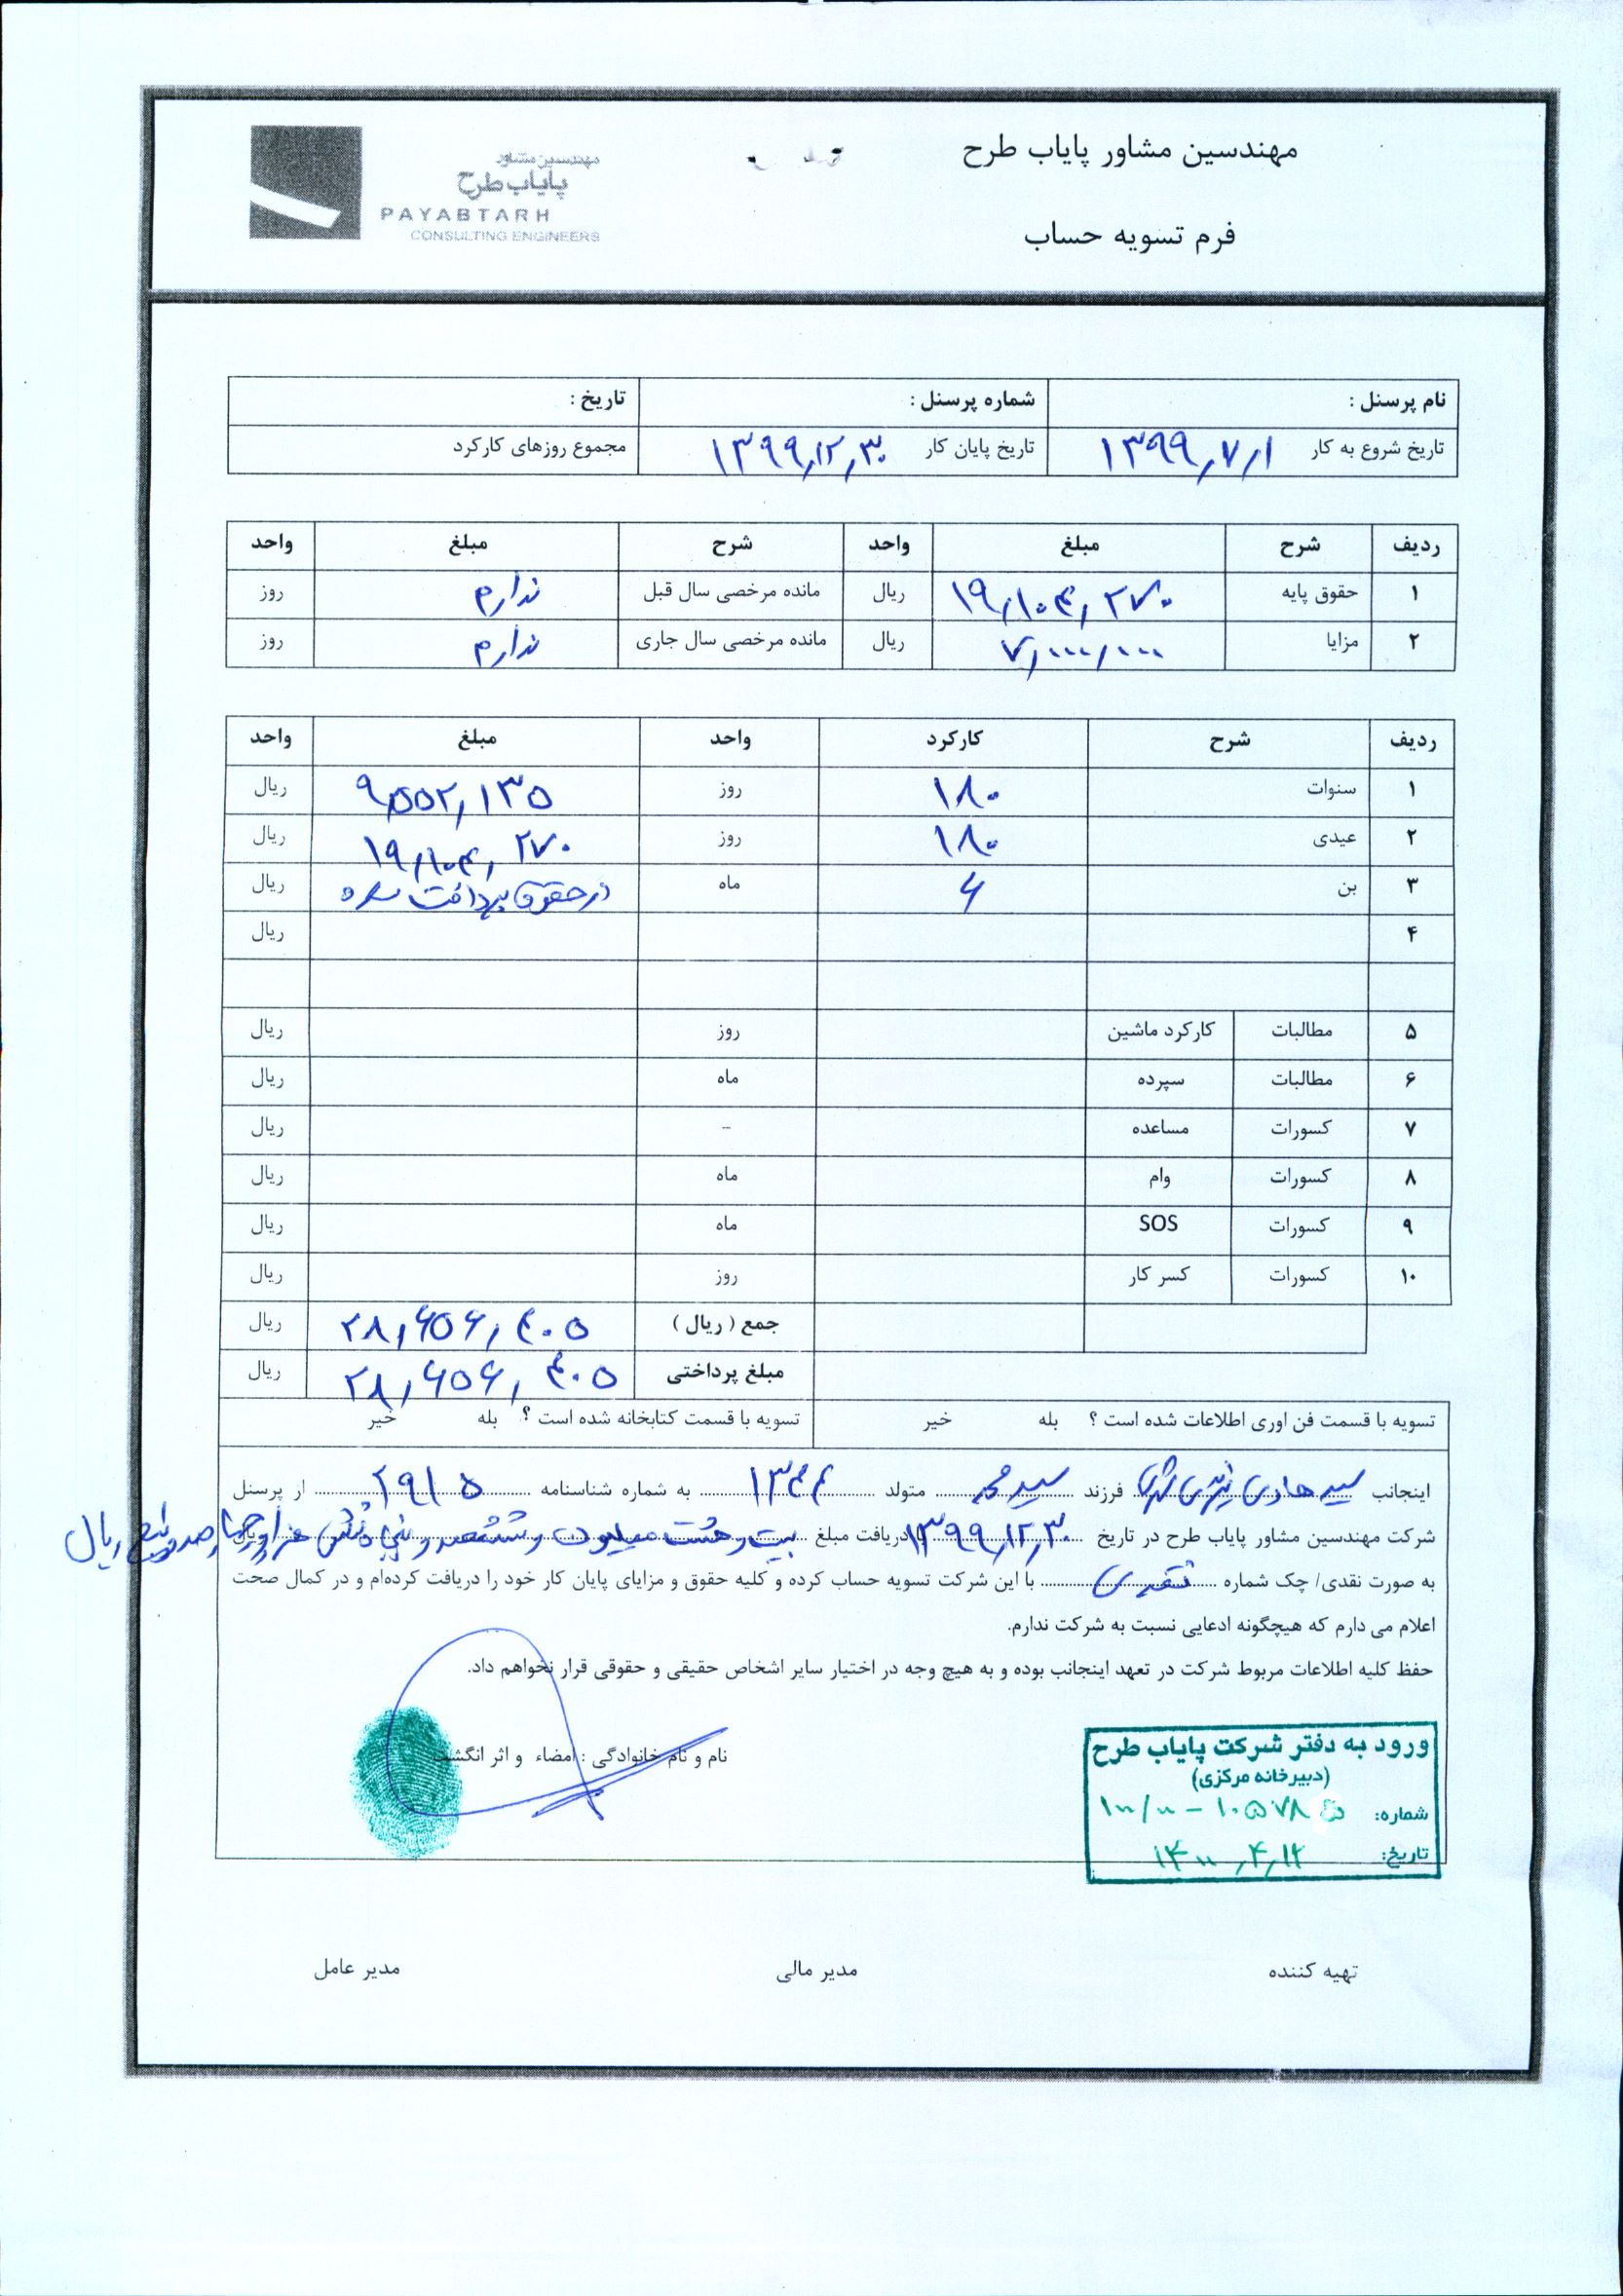 مهندسین مشاور پایاب طرح
مهندسین مشاور
پایاب طرح
PAYABTARH
CONSULTING ENGINEERS
فرم تسویه حساب
نام پرسنل : شماره پرسنل : تاریخ :
تاریخ شروع به کار ۱۳۹۹,۷,۱ تاریخ پایان کار ۱۳۹۹,۱۲,۳۰ مجموع روزهای کارکرد
ردیف شرح مبلغ واحد شرح مبلغ واحد
۱ حقوق پایه ۱۹,۱۰۴,۲۷۰ ریال مانده مرخصی سال قبل ندارم روز
۲ مزایا ۷,۰۰۰,۰۰۰ ریال مانده مرخصی سال جاری ندارم روز
ردیف شرح کارکرد واحد مبلغ واحد
۱ سنوات ۱۸۰ روز ۹,۵۵۲,۱۳۵ ریال
۲ عیدی ۱۸۰ روز ۱۹,۱۰۴,۲۷۰ ریال
۳ بن ۶ ماه در حقوق پرداخت شده ریال
۴ ریال
۵ مطالبات کارکرد ماشین روز ریال
۶ مطالبات سپرده ماه ریال
۷ کسورات مساعده - ریال
۸ کسورات وام ماه ریال
۹ کسورات SOS ماه ریال
۱۰ کسورات کسر کار روز ریال
جمع ( ریال ) ۲۸,۶۵۶,۴۰۵ ریال
مبلغ پرداختی ۲۸,۶۵۶,۴۰۵ ریال
تسویه با قسمت فن اوری اطلاعات شده است ؟ بله خیر تسویه با قسمت کتابخانه شده است ؟ بله خیر
اینجانب سید هادی فرزند سید محمد متولد ۱۳۴۴ به شماره شناسنامه ۲۹۱۵ از پرسنل
شرکت مهندسین مشاور پایاب طرح در تاریخ ۱۳۹۹,۱۲,۳۰ با دریافت مبلغ بیست و هشت میلیون و ششصد و پنجاه و شش هزار و چهارصد و پنج ریال
به صورت نقدی/ چک شماره نقدی با این شرکت تسویه حساب کرده و کلیه حقوق و مزایای پایان کار خود را دریافت کرده‌ام و در کمال صحت
اعلام می دارم که هیچگونه ادعایی نسبت به شرکت ندارم.
حفظ کلیه اطلاعات مربوط شرکت در تعهد اینجانب بوده و به هیچ وجه در اختیار سایر اشخاص حقیقی و حقوقی قرار نخواهم داد.
نام و نام خانوادگی : امضاء و اثر انگشت
ورود به دفتر شرکت پایاب طرح
(دبیرخانه مرکزی)
شماره:
تاریخ: ۱۴۰۰,۴,۱۲
تهیه کننده مدیر مالی مدیر عامل